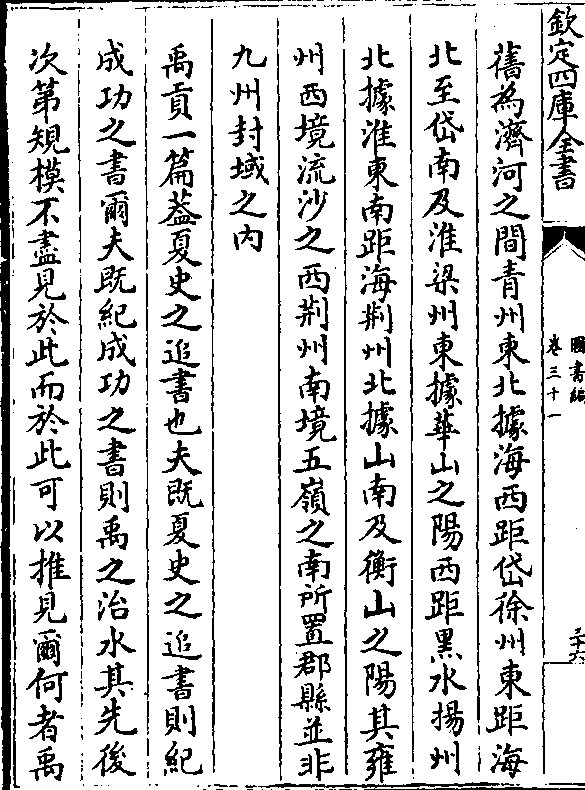 欽定四庫全書
圖書編
卷三十一
三十六
舊為濟河之間青州東北據海西距岱徐州東距海
北至岱南及淮梁州東據華山之陽西距黑水揚州
北據淮東南距海荆州北據山南及衡山之陽其雍
州西境流沙之西荆州南境五嶺之南所置郡縣並非
九州封域之内
禹貢一篇葢夏史之追書也夫既夏史之追書則紀
成功之書爾夫既紀成功之書則禹之治水其先後
次第規模不盡見於此而於此可以推見爾何者禹